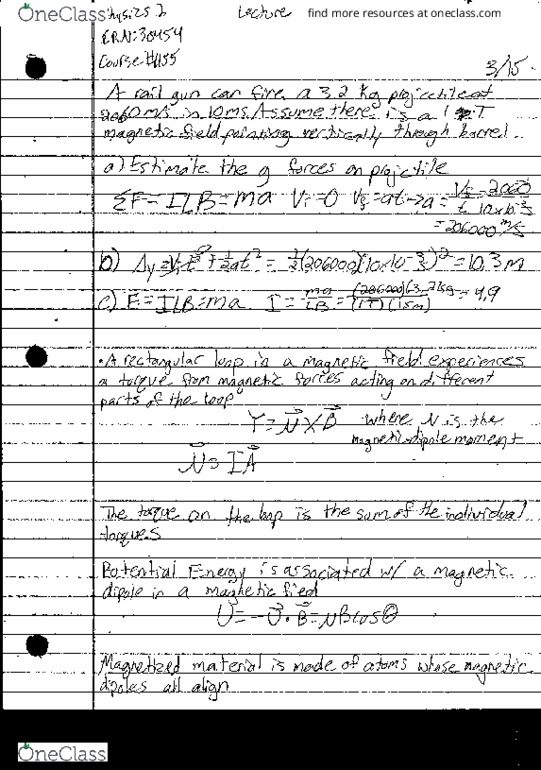 OneClass
Physics 2
Lecture
find more resources at oneclass.com
CRN: 30454
Course #1155
3/15
A rail gun can fire a 3.2 kg projectile at
2060 m/s in 10ms. Assume there is a 1 T
magnetic field pointing vertically through barrel.
a) Estimate the g forces on projectile
ΣF = ILB = ma Vi = 0 Vf = at → a =
= 206000 m/s
b) Δy = Vit + ½at² = ½(206000)(10x10⁻³)² = 10.3 m
c) F = ILB = ma I = ma/LB = (206000)(3.2kg)/(1T)(.15m) = 4.9
• A rectangular loop in a magnetic field experiences
a torque from magnetic forces acting on different
parts of the loop
Υ = μ⃗ X B⃗ where μ is the
magnetic dipole moment
μ⃗ = IA⃗
The torque on the loop is the sum of the individual
torques
Potential Energy is associated w/ a magnetic
dipole in a magnetic field
U = -U⃗ · B⃗ = μBcosθ
Magnetized material is made of atoms whose magnetic
dipoles all align
OneClass